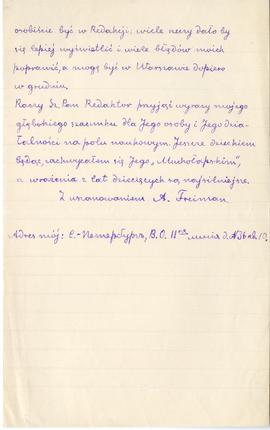 osobiście być w Redakcji; wiele rzeczy dało by
się lepiej wyświetlić i wiele błędów moich
poprawić, a mogę być w Warszawie dopiero
w grudniu.
Raczy Sz. Pan Redaktor przyjąć wyrazy mojego
głębokiego szacunku dla Jego osoby i Jego dzia-
łalności na polu naukowem. Jeszcze dzieckiem
będąc, zachwycałem się Jego „Muchołapskim",
a wrażenia z lat dziecięcych są najsilniejsze.
Z uszanowaniem A. Freiman.
Adres mój: С.-Петербургъ, В.О. 11ая линія д. № кв. 10.